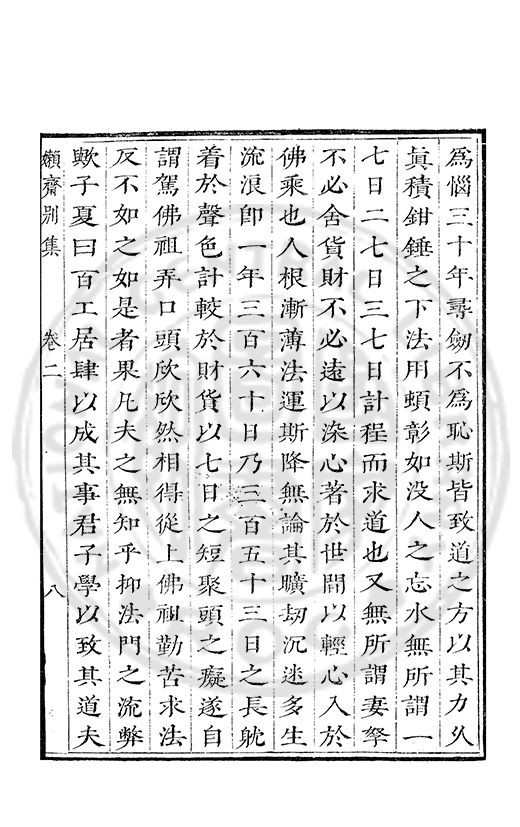 為惱三十年尋劒不為恥斯皆致道之方以其力久
眞積鉗錘之下法用頓彰如没人之忘水無所謂一
七日二七日三七日計程而求道也又無所謂妻孥
不必舍貨財不必遠以染心著於世間以輕心入於
佛乘也人根漸薄法運斯降無論其曠刼沉迷多生
流浪即一年三百六十日乃三百五十三日之長躭
着於聲色計較於財貨以七日之短聚頭之癡遂自
謂駕佛祖弄口頭欣欣然相得從上佛祖勤苦求法
反不如之如是者果凡夫之無知乎抑法門之流弊
歟子夏曰百工居肆以成其事君子學以致其道夫
嬾齋别集
卷二
八